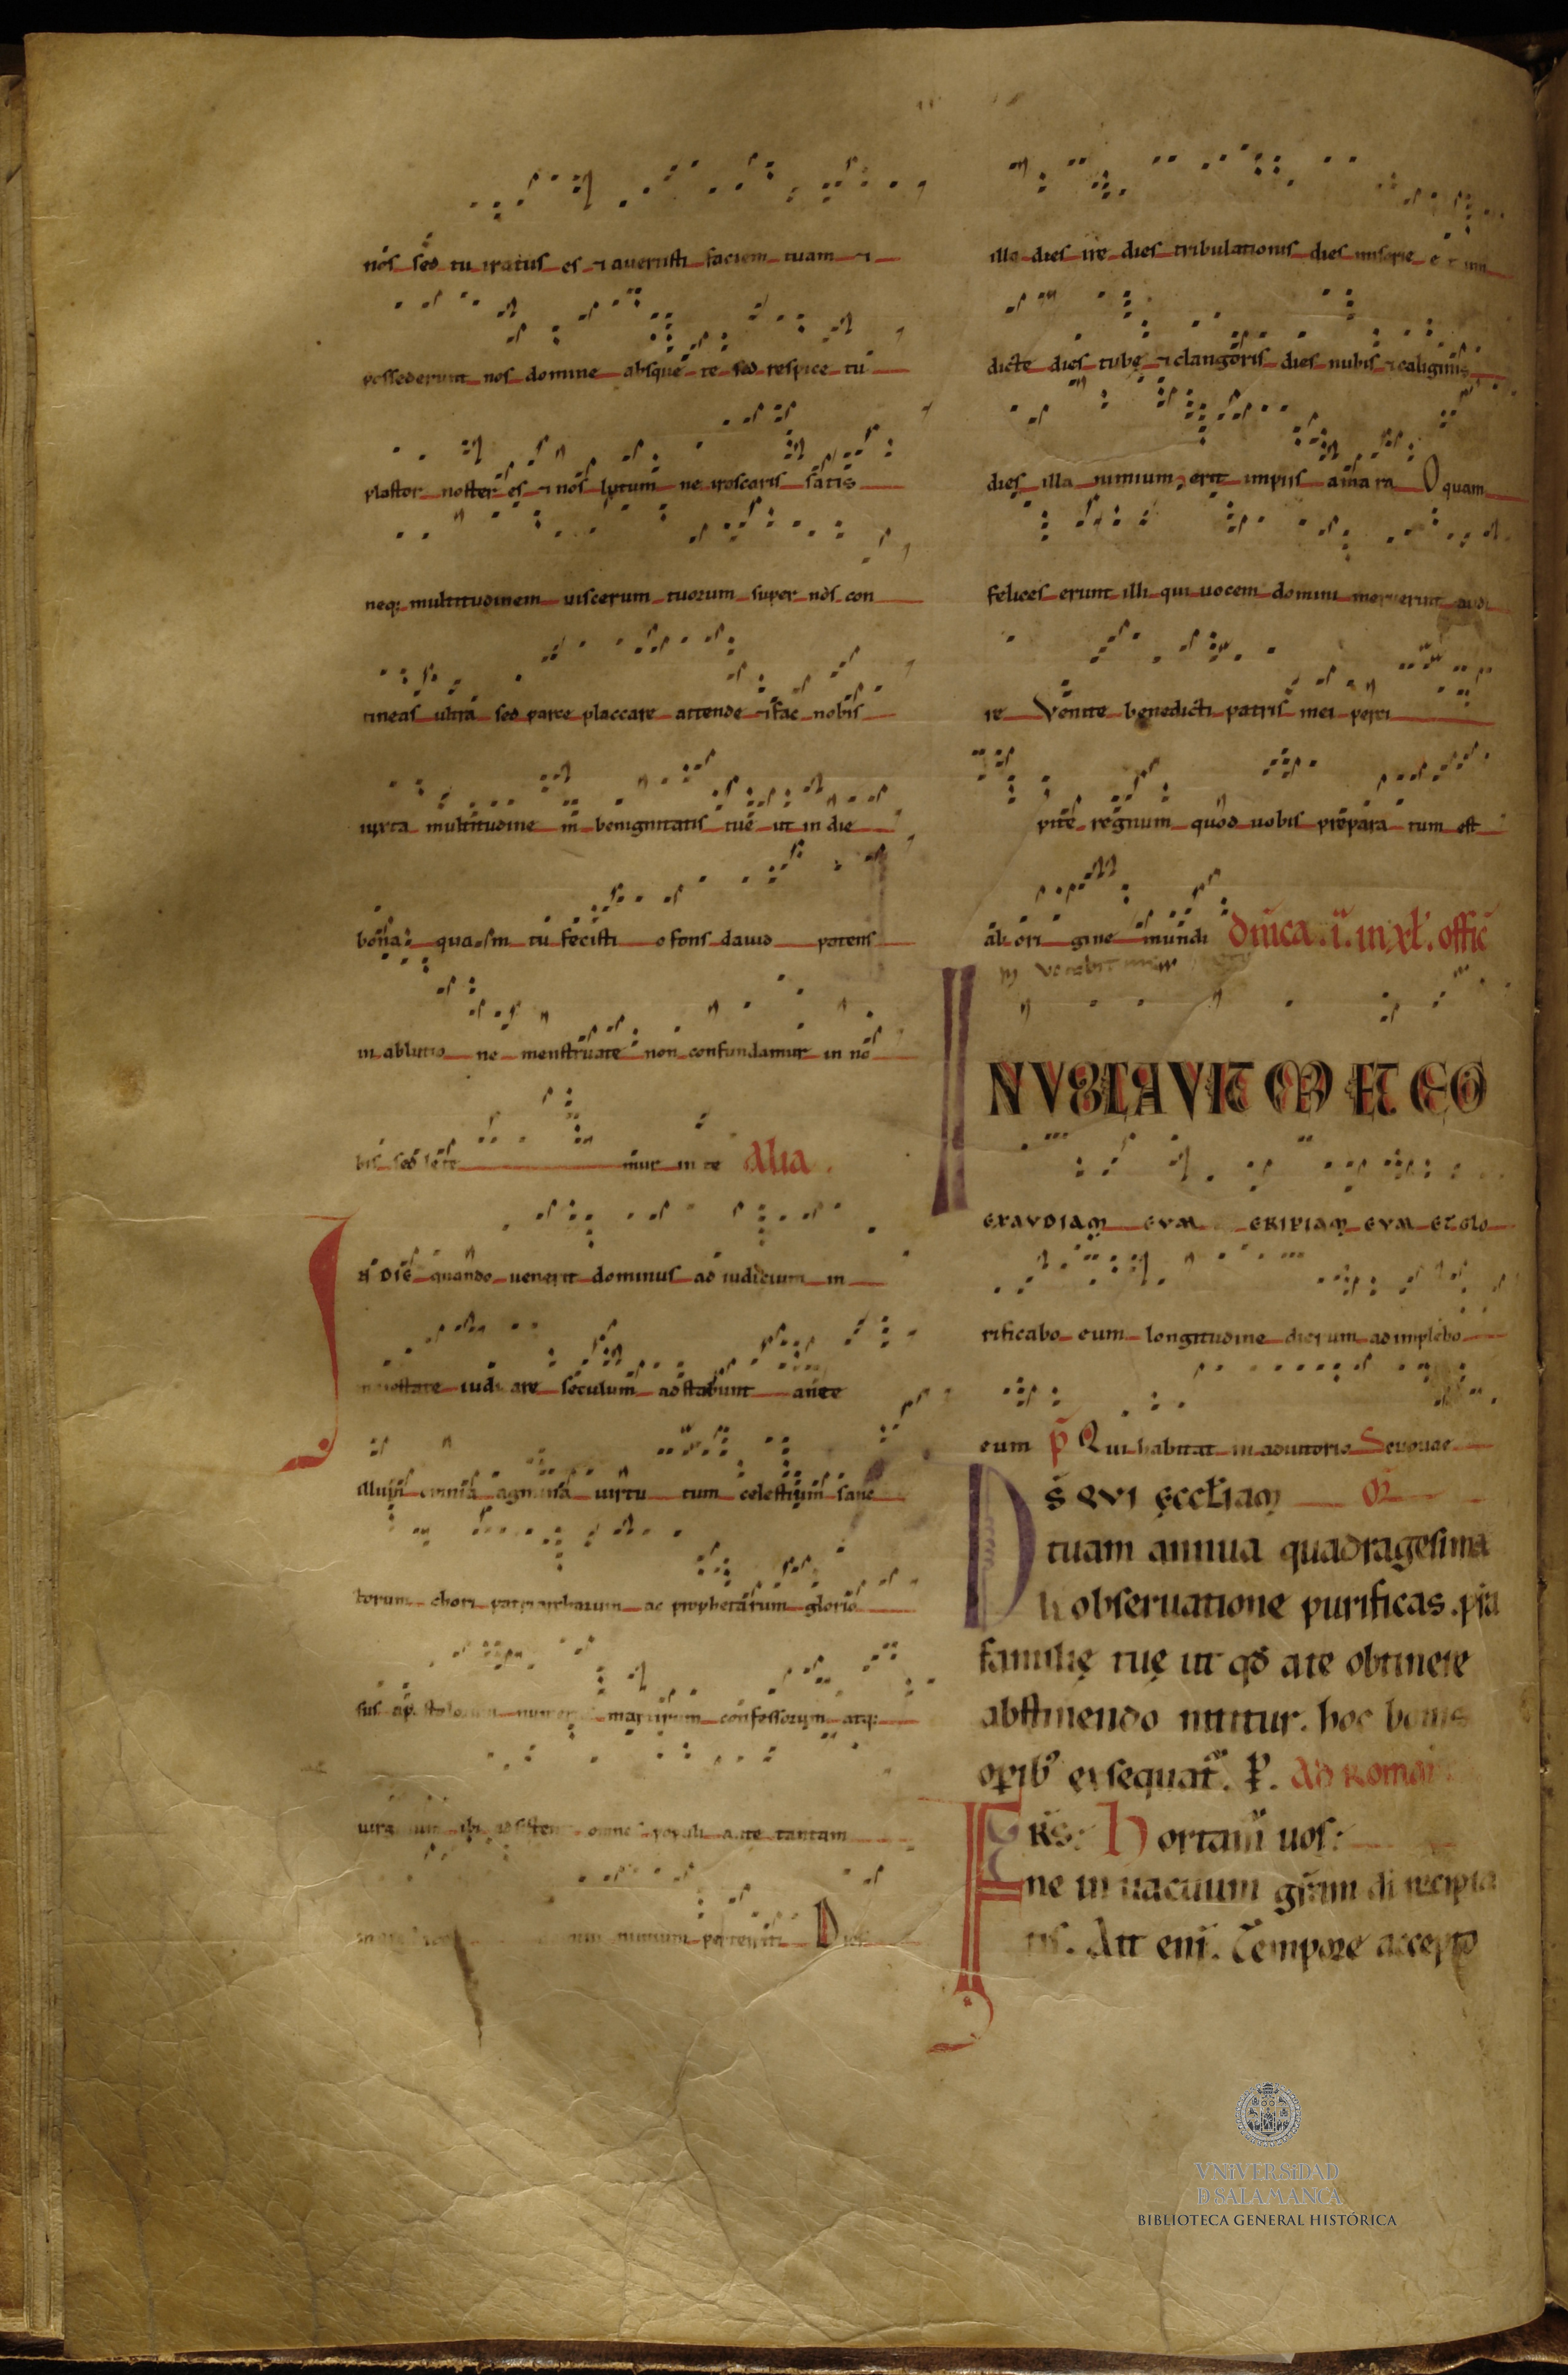 nos sed tu iratus es ⁊ auertisti faciem tuam ⁊
possederunt nos domine absque te sed respice tu
plastor noster es ⁊ nos lutum ne irascaris satis
neq; multitudinem uiscerum tuorum super nos con
tineas ultra sed parce placcare attende ⁊ fac nobis
iuxta multitudine m benignitatis tuę ut in die
bona quasm tu fecisti o fons dauid potens
in ablutio ne menstruate non confundamur in no
bis sed lete mur in te Alia
IN DIE quando uenerit dominus ad iudicium in
maiestate iudicare seculum adstabunt ante
illum omnia agmina uirtu tum celestium sanc
torum chori patriarcharum ac prophetarum glorio
sus apostolorum martirum confessorum atq;
ibi omnes populi ante tantam
nimium pertensiti Dies
illa dies ire dies tribulationis dies miserie et
dicte dies tubę ⁊ clangoris dies nubis ⁊ caliginis
dies illa nimium erit impiis amara O quam
felices erunt illi qui uocem domini meruerint audi
re Venite benedicti patris mei perci
pite regnum quod uobis prepara tum est
ab ori gine mundi Dnica .i. in xl. offic
INVOCAVIT ME ET EGO
EXAVDIAM EVM ERIPIAM EVM ET GLO
rificabo eum longitudine dierum adimplebo
eum p̄ Qui habitat in adiutorio Seuouae
DS QVI ęcctiam
tuam annua quadragesima
li obseruatione purificas. pra
familię tuę ut qd ate obtinere
abstinendo nititur. hoc bonis
opib' exsequat'. P. Ad Roman
FRS: Hortam uos:
ne in uacuum gram di recipia
tis. Ait eni. Tempore accepto
VNiVERSiDAD
D SALAMANCA
BIBLIOTECA GENERAL HISTÓRICA